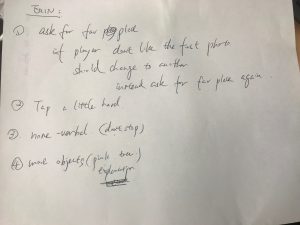 ERIN:
① ask for far place
if player dont like the fast photo
should change to another
instead ask for far place again
② Tap a little hard
③ none-verbal. (dont stop)
④ more objects (pink tree.)
explanation